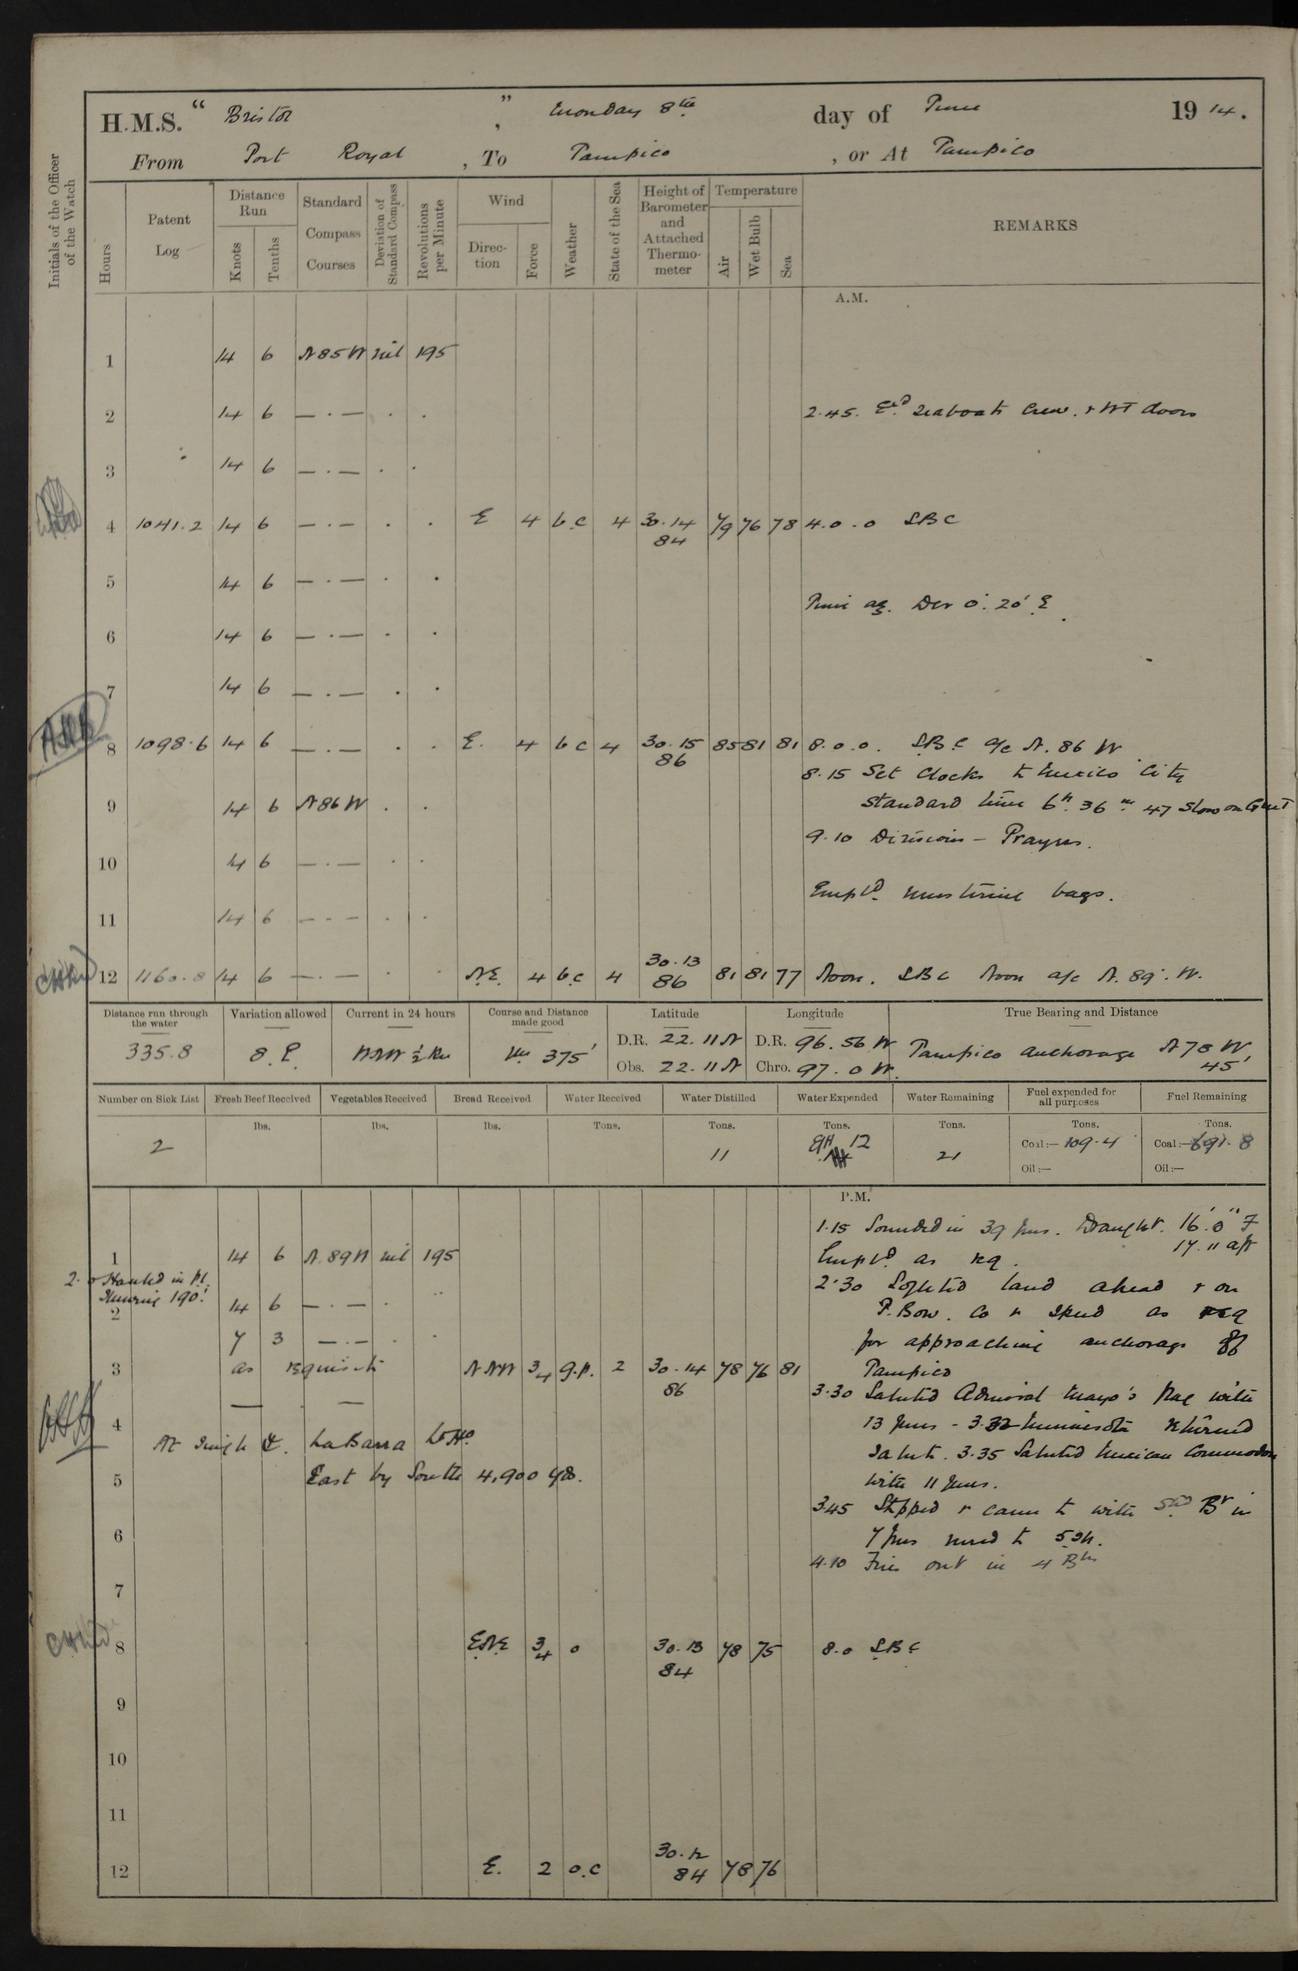 H.M.S. “ Bristol ” , Monday 8th day of June 19 14.
From Port Royal , To Tampico , or At Tampico
Initials of the Officer of the Watch
Hours
Patent Log
Distance Run
Knots
Tenths
Standard Compass Courses
Deviation of Standard Compass
Revolutions per Minute
Wind
Direction
Force
Weather
State of the Sea
Height of Barometer and Attached Thermometer
Temperature
Air
Wet Bulb
Sea
REMARKS
A.M.
1 14 6 N85W nil 195
2 14 6 — . — . .
2.45. Exd Seaboats Crew. & WT doors
3 14 6 — . — . .
4 1041.2 14 6 — . — . . E 4 b.c 4 30.14 79 76 78 4.0.0 SBC
84
5 14 6 — . — . .
Time az. Dev 0°.20' E.
6 14 6 — . — . .
7 14 6 — . — . .
8 1098.6 14 6 — . — . . E. 4 b c 4 30.15 85 81 81 8.0.0. S.B.C a/c N. 86 W
86
8.15 Set Clocks to Mexico City
9 14 6 N86W . .
Standard time 6h. 36m 47 Slow on GMT
9.10 Divisions – Prayers.
10 14 6 — . — . .
Empld. mustering bags.
11 14 6 — - — . .
12 1160.8 14 6 — . — . . N.E. 4 b.c 4 30.13 81 81 77 Noon. SBC Noon a/c N. 89°. W.
86
Distance run through the water
335.8
Variation allowed
8. E.
Current in 24 hours
WNW ½ Kn
Course and Distance made good
375'
Latitude
D.R. 22. 11 N
Obs. 22. 11 N
Longitude
D.R. 96. 56 W
Chro. 97. 0 W.
True Bearing and Distance
Tampico anchorage N 78 W,
45'
Number on Sick List
2
Fresh Beef Received
lbs.
Vegetables Received
lbs.
Bread Received
lbs.
Water Received
Tons.
Water Distilled
Tons.
11
Water Expended
Tons.
12
Water Remaining
Tons.
21
Fuel expended for all purposes
Tons.
Coal:— 109.4
Oil:—
Fuel Remaining
Tons.
Coal:— 691.8
Oil:—
P.M.
1.15 Sounded in 39 fms. Draught. 16'.0" F
17.11 aft
1 14 6 N.89W nil 195
Empld as req.
2.0 Hauled in P.L.
Showing 190.'
2 14 6 — . — . ..
2.30 Sighted land ahead & on
P. Bow. Co & Speed as req
7 3 — . — . .
for approaching anchorage off
3 as requisite NNW 3/4 g.p. 2 30.14 78 76 81
86
Tampico
3.30 Saluted Admiral Mayo's flag with
4 — . —
13 guns - 3.32 Minnesota returned
At Single A. La Barra Lt Ho.
Salute. 3.35 Saluted Mexican Commodore
5 East by South 4,900 yds.
with 11 guns.
3.45 Stopped & came to with Std Br in
6
7 fms veered to 5 sh.
4.10 Fires out in 4 Blrs
7
8 E.N.E 3/4 o 30.13 78 75 8.0 S.B.C
84
9
10
11
12 E. 2 o.c 30.12 78 76
84